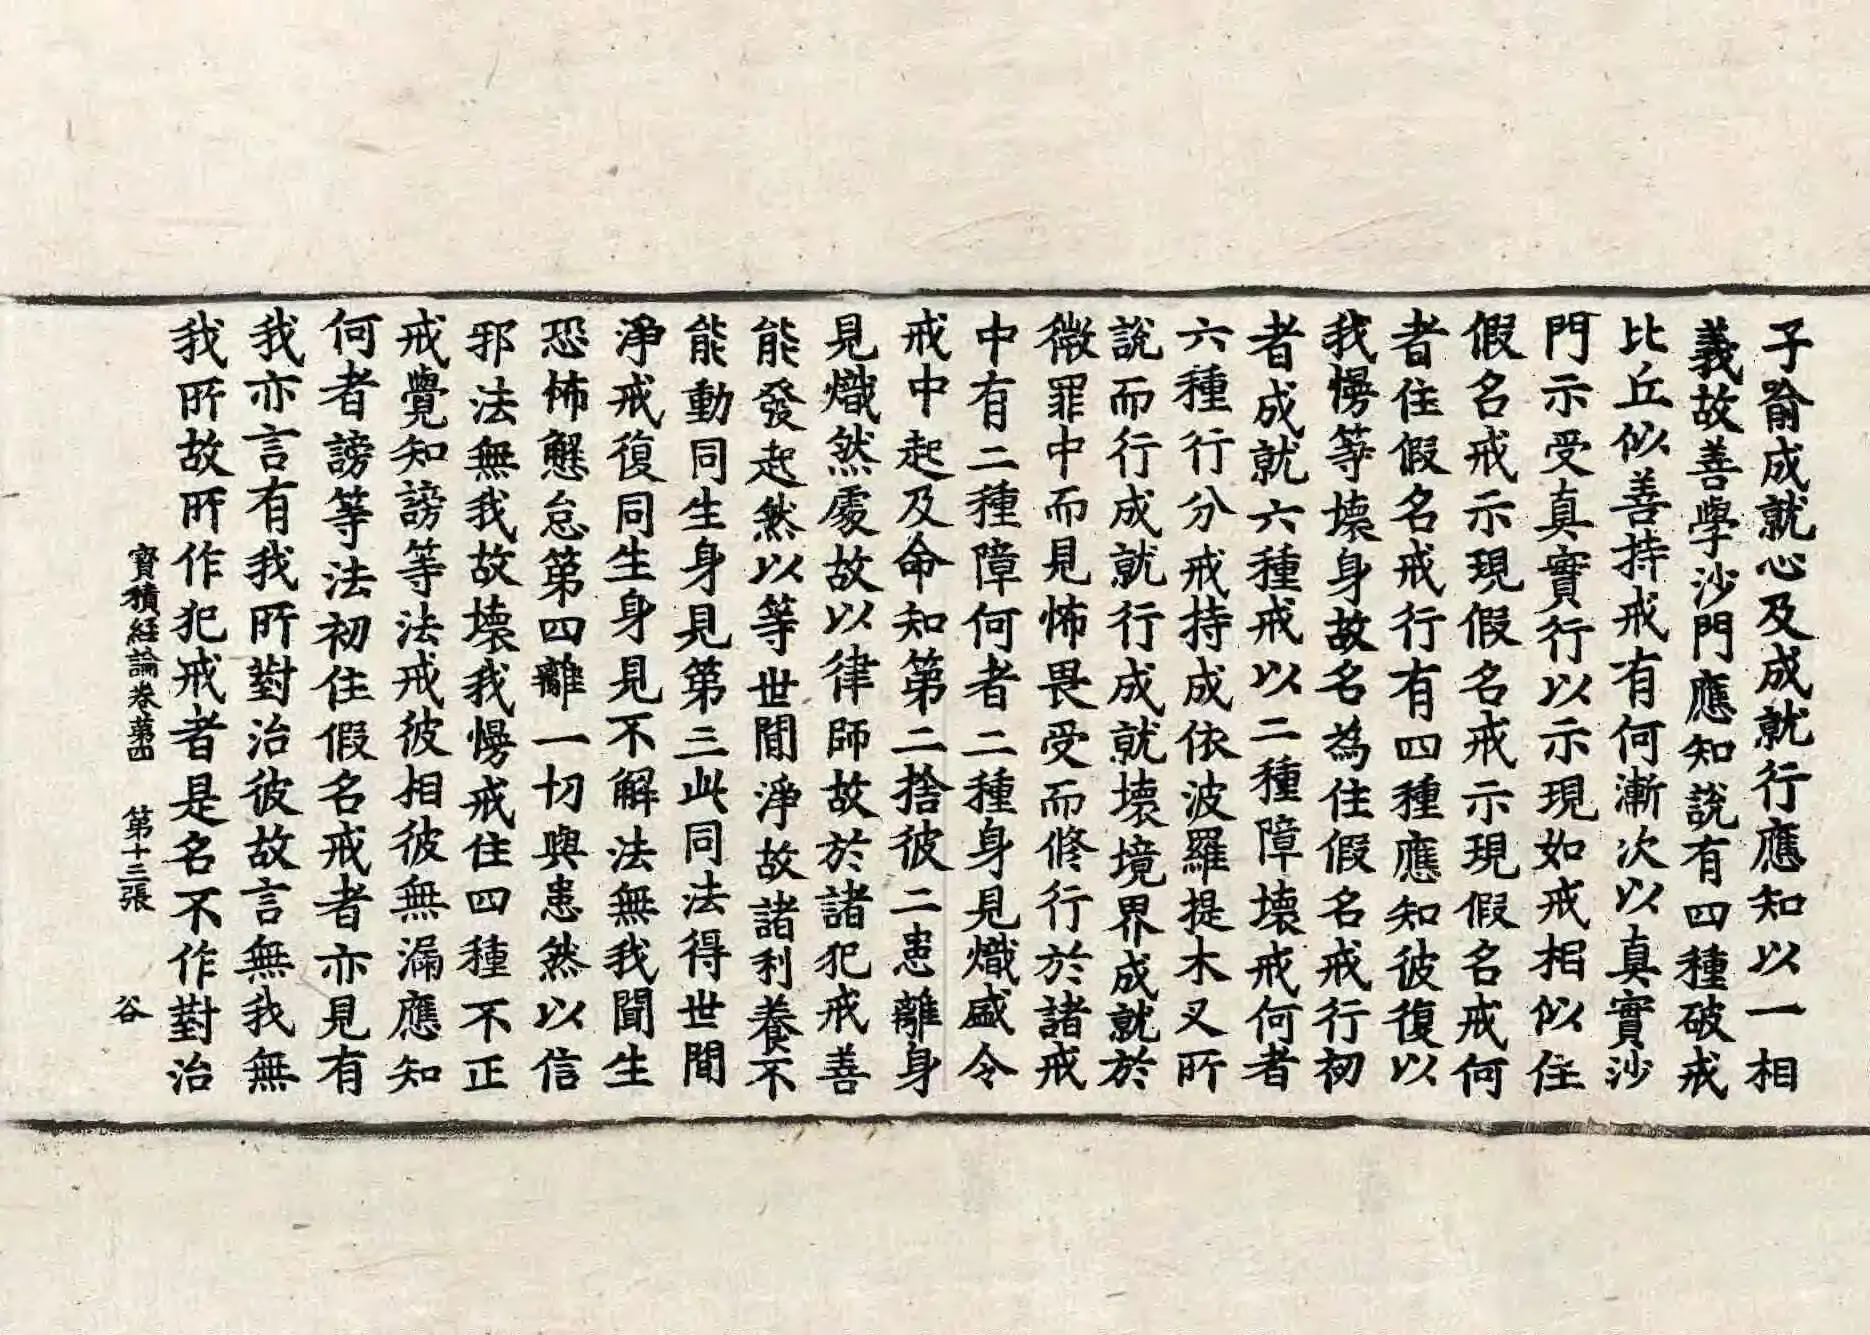 子喻成就心及成就行應知以一相
義故善學沙門應知說有四種破戒
比丘似善持戒有何漸次以真實沙
門示受真實行以示現如戒相似住
假名戒示現假名戒示現假名戒何
者住假名戒行有四種應知彼復以
我慢等壞身故名為住假名戒行初
者成就六種戒以二種障壞戒何者
六種行分戒持成依波羅提木叉所
說而行成就行成就壞境界成就於
微罪中而見怖畏受而修行於諸戒
中有二種障何者二種身見熾盛令
戒中起及命知第二捨彼二患離身
見熾然處故以律師故於諸犯戒善
能發起然以等世間淨故諸利養不
能動同生身見第三此同法得世間
淨戒復同生身見不解法無我聞生
恐怖懈怠第四離一切與患然以信
邪法無我故壞我慢戒住四種不正
戒覺知謗等法戒彼相彼無漏應知
何者謗等法初住假名戒者亦見有
我亦言有我所對治彼故言無我無
我所故所作犯戒者是名不作對治
寶積經論卷第四 第十三張 谷